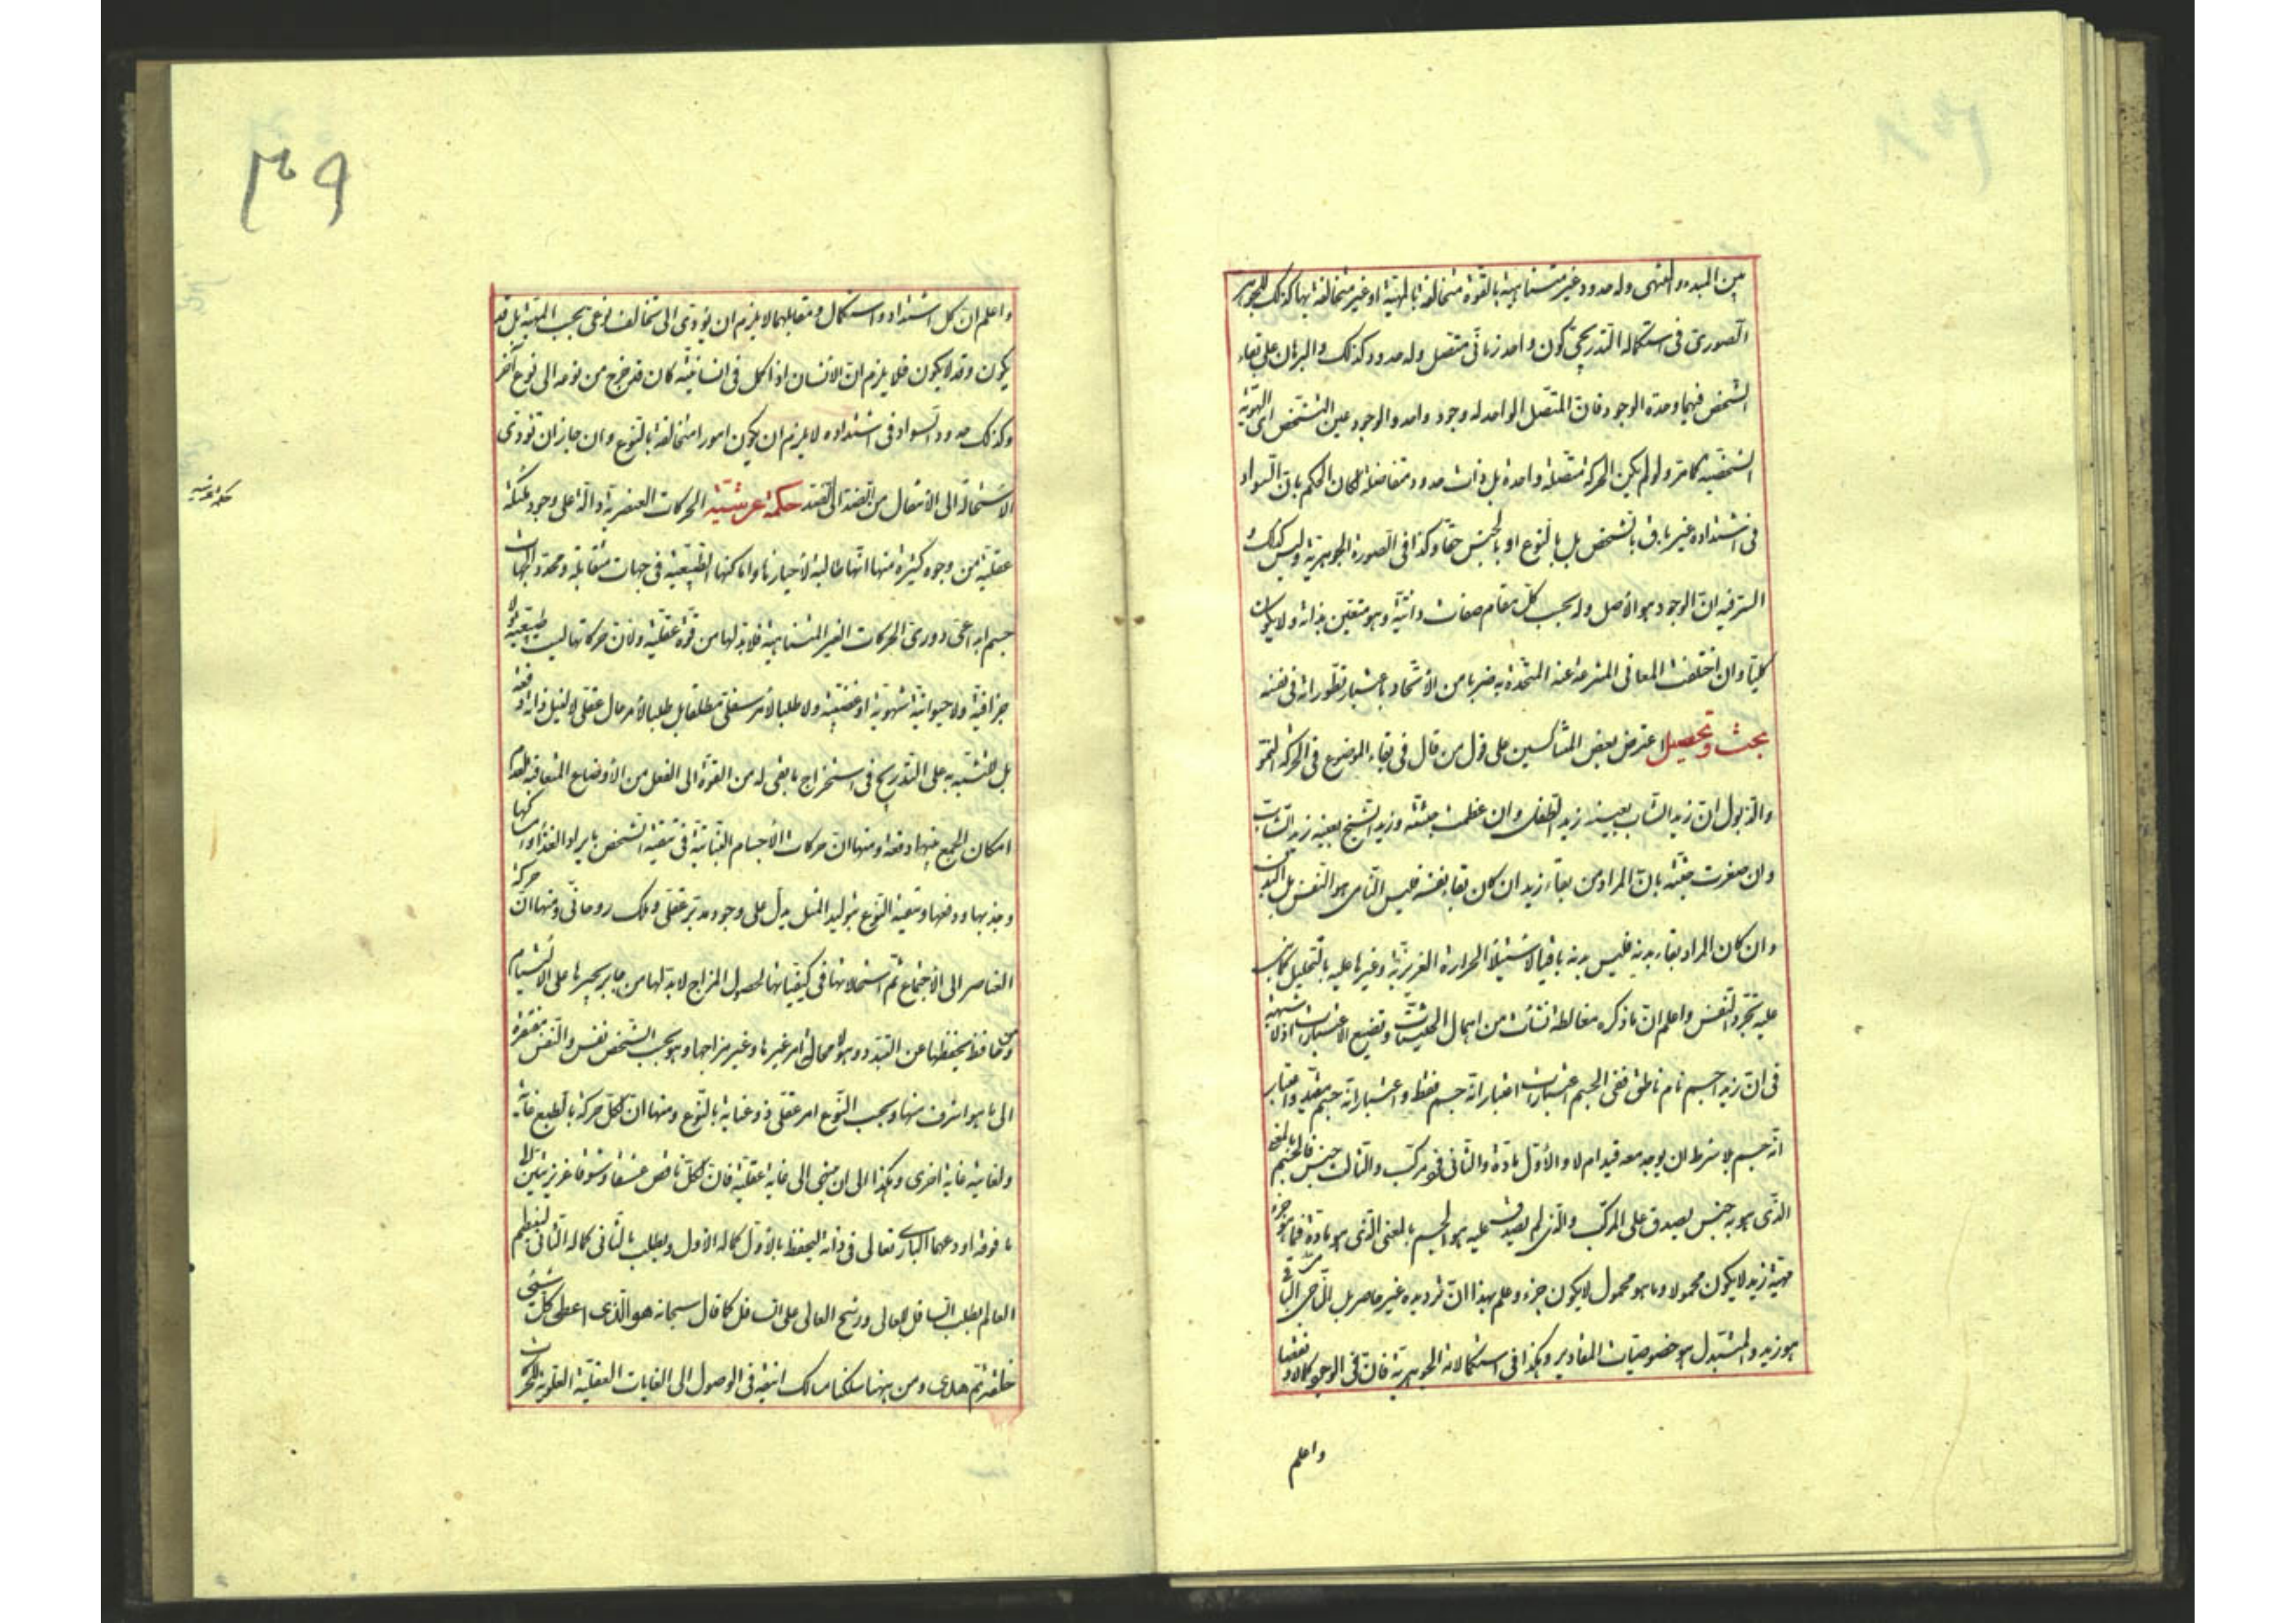 بين المبدء والمنتهى وله حدود غير متناهية بالقوة متخالفة بالمهية او غير متخالفة بها كذلك للجوهر
الصورى فى استكماله التدريجى كون واحد زمانى متصل وله حدود كذلك والبرهان على بقاء
الشخص فيهما وحدة الوجود فان المتصل الواحد له وجود واحد والوجود عين التشخص اى الهوية
الشخصية كما مر ولو لم يكن الحركة متصلة واحدة بل ذات حدود متفاصلة لكان الحكم بان السواد
فى اشتداده غير باق بالشخص بل بالنوع او بالجنس حقا وكذا فى الصورة الجوهرية وليس كذلك و
السر فيه ان الوجود هو الاصل وله بحسب كل مقام صفات ذاتية وهو متعين بذاته ولا يكون
كليا وان اختلفت المعانى المنتزعة عنه المتحدة به ضربا من الاتحاد باعتبار تطوراته فى نفسه
بحث وتحصيل اعترض بعض المشاكسين على قول من قال فى بقاء الموضوع فى الحركة النمو
والذبول ان زيد الشاب بعينه زيد الطفل وان عظمت جثته وزيد الشيخ بعينه زيد الشاب
وان صغرت جثته بان المراد من بقاء زيد ان كان بقا نفسه فليس النامى هو النفس بل البدن
وان كان المراد بقاء بدنه فليس بدنه باقيا لاستيلاء الحرارة الغريزية وغيرها عليه بالتحليل
عليه تجرد النفس واعلم ان ما ذكره مغالطة نشات من اهمال الحيثيات وتضييع الاعتبارات اذ لا شبهة
فى ان زيدا جسم نام ناطق ففى الجسم اعتبارات اعتبار انه جسم فقط واعتبار انه جسم مقيد واعتبار
انه جسم بلا شرط ان يوجد معه قيد ام لا والاول مادة والثانى مركب والثالث جنس فالجسم بالمعنى
الذى هو به جنس يصدق على المركب والذى لم يصدق عليه هو الجسم بالمعنى الذى هو مادة فما هو جزء
مهية زيد لا يكون محمولا وما هو محمول لا يكون جزء وعلم بهذا ان ترديده غير حاصر بل النامى الباقى
هو زيد والمتبدل هو خصوصيات المقادير وهكذا فى استكمالاته الجوهرية فان فى الوجود كمالا ونقصا
واعلم
٣٩
واعلم ان كل اشتداد واستكمال ومقابلهما لا يلزم ان يؤدى الى تخالف نوعى بحسب المهية بل قد
يكون وقد لا يكون فلا يلزم ان الانسان اذا كمل فى انسانيته كان قد خرج من نوعه الى نوع آخر
وكذلك حدود السواد فى اشتداده لا يلزم ان يكون امورا متخالفة بالنوع وان جاز ان تؤدى
الاستحالة الى الانتقال من الضد الى الضد حكمة عرشية الحركات العنصرية دالة على وجود ملئكة
حكمة عرشيه
عقلية من وجوه كثيرة منها انها طالبة لاحيازها واماكنها الطبيعية فى جهات متقابلة ومحدد الجهات
جسم ابداعى دورى الحركات الغير المتناهية فلا بد لها من قوة عقلية ولان حركاتها ليست طبيعية ولا
جزافية ولا حيوانية شهوية او غضبية ولا طلبا لامر سفلى مطلقا بل طلبا لامر عال عقلى لا لنيل ذاته دفعة
بل للتشبه به على التدريج فى استخراج ما بقى له من القوة الى الفعل من الاوضاع المتعاقبة لعدم
امكان الجمع فيها دفعة ومنها ان حركات الاجسام النباتية فى تبقية الشخص بايراد الغذا وامساكها
وجذبها ودفعها وتبقية النوع بتوليد المثل يدل على وجود مدبر عقلى وملك روحانى ومنها ان حركة
العناصر الى الاجتماع ثم استحالاتها فى كيفياتها لحصول المزاج لا بد لها من جابر يجبرها على الالتيام
ومن حافظ يحفظها عن التبدد وهو لا محالة امر غيرها وغير مزاجها وهو بحسب الشخص نفس والنفس مفتقرة
الى ما هو اشرف منها وبحسب النوع امر عقلى ذو عناية بالنوع ومنها ان لكل حركة بالطبع غاية
ولغايته غاية اخرى وهكذا الى ان ينتهى الى غاية عقلية فان لكل ناقص عشقا وشوقا غريزيين الى
ما فوقه اودعهما البارى تعالى فى ذاته ليحفظ بالاول كماله الاول ويطلب بالثانى كماله الثانى لينتظم
العالم بطلب السافل للعالى ورشح العالى على السافل كما قال سبحانه هو الذى اعطى كل شىء
خلقه ثم هدى ومن ههنا سلكنا مسالك انيقة فى الوصول الى الغايات العقلية العلوية للحركات